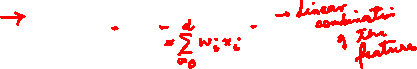 → = \sum_{i=0}^{d} w_i x_i → Linear
combination
of the
features